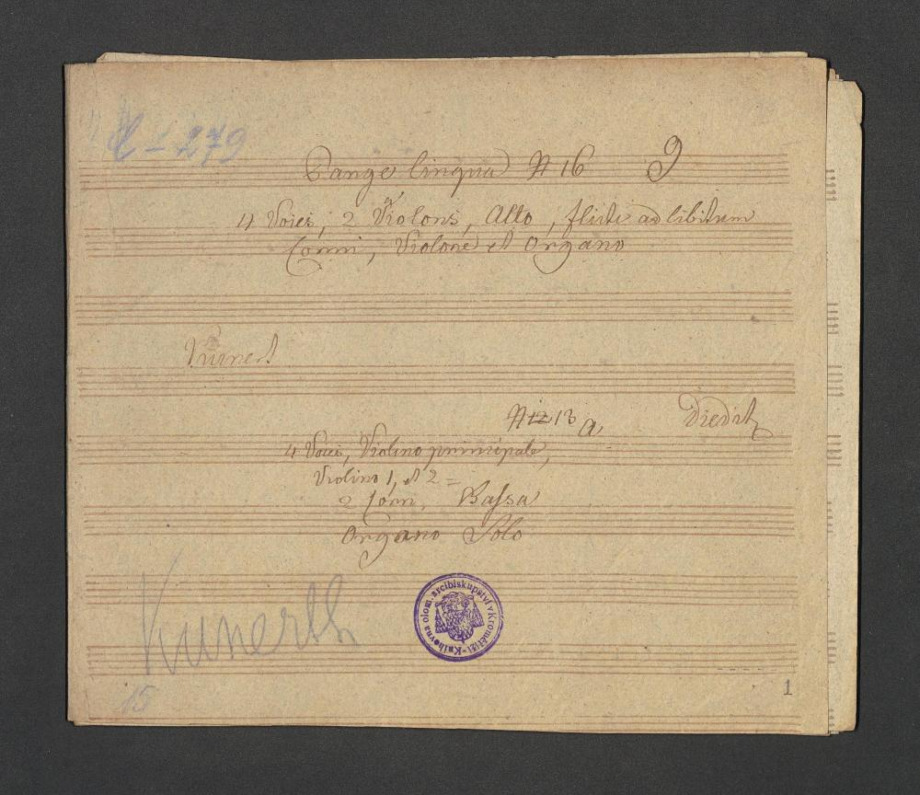 C – 279
Pange lingua N 16 9
4 Voici, 2 Violons, Alto, flute ad libitum
Corni, Violone et Organo
Kunert
N 12 13 a,
4 Voici, Violino principale,
Violino 1, et 2 =
2 Corni, Bassa
Organo Solo
Kunerth
Knihovna olom. arcibiskupství v Kroměříži
15
1